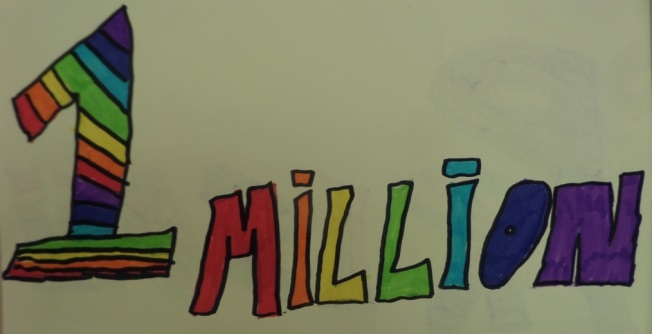 1 MiLLiON